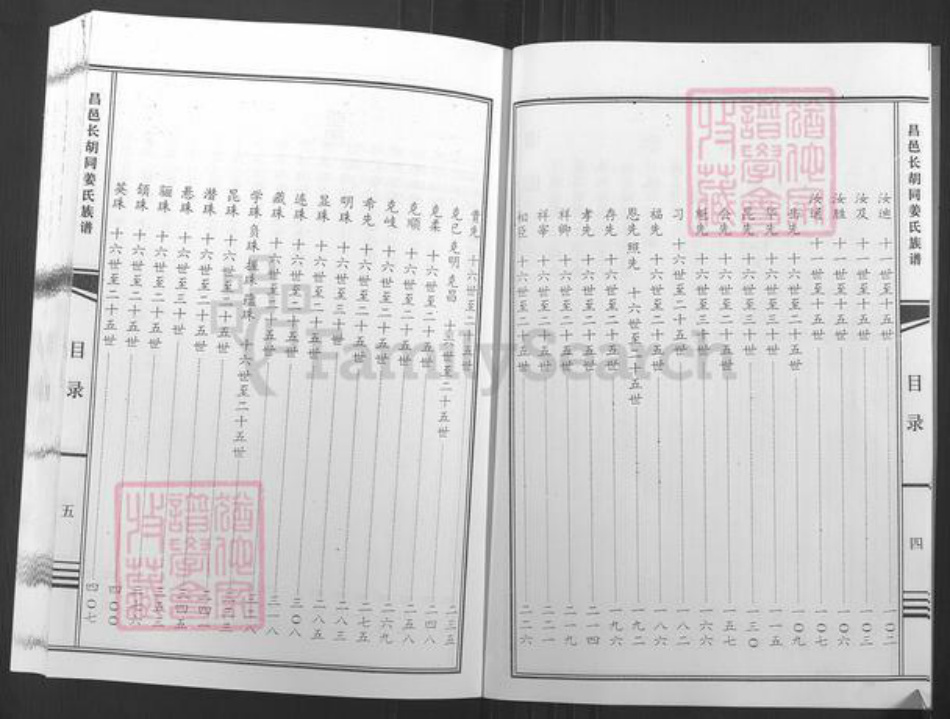 昌邑长胡同姜氏族谱
目录
四
汝迪 十一世至十五世 一〇二
汝及 十一世至十五世 一〇三
汝胜 十一世至十五世 一〇六
十一世至十五世 一〇七
十六世至二十五世 一〇九
十六世至三十世 一一五
昆先 十六世至三十世 一三〇
公先 十六世至二十五世 一五七
魁先 十六世至三十世 一六六
习 十六世至二十五世 一八二
福先 十六世至二十五世 一八六
恩先 照先 十六世至二十五世 一九二
存先 十六世至二十五世 一九六
孝先 十六世至二十五世 二一四
祥卿 十六世至二十五世 二一九
祥宰 十六世至二十五世 二二一
相臣 十六世至二十五世 二二六
贵先 十六世至二十五世 二三五
克已 克明 克昌 十六世至二十五世 二四八
克柔 十六世至二十五世 二五八
克顺 十六世至二十五世 二六九
克岐 十六世至二十五世 二七五
希先 十六世至二十五世 二八三
明珠 十六世至三十世 二八五
显珠 十六世至二十五世 三〇八
连珠 十六世至二十五世 三一八
藏珠 十六世至二十五世
学珠 负珠 蕴珠 十六世至二十五世
昆珠 十六世至二十五世
潜珠 十六世至二十五世
悬珠 十六世至三十世
骊珠 十六世至二十五世
颔珠 十六世至二十五世 四〇〇
英珠 十六世至二十五世 四〇七
昌邑长胡同姜氏族谱
目录
五
FamilySearch